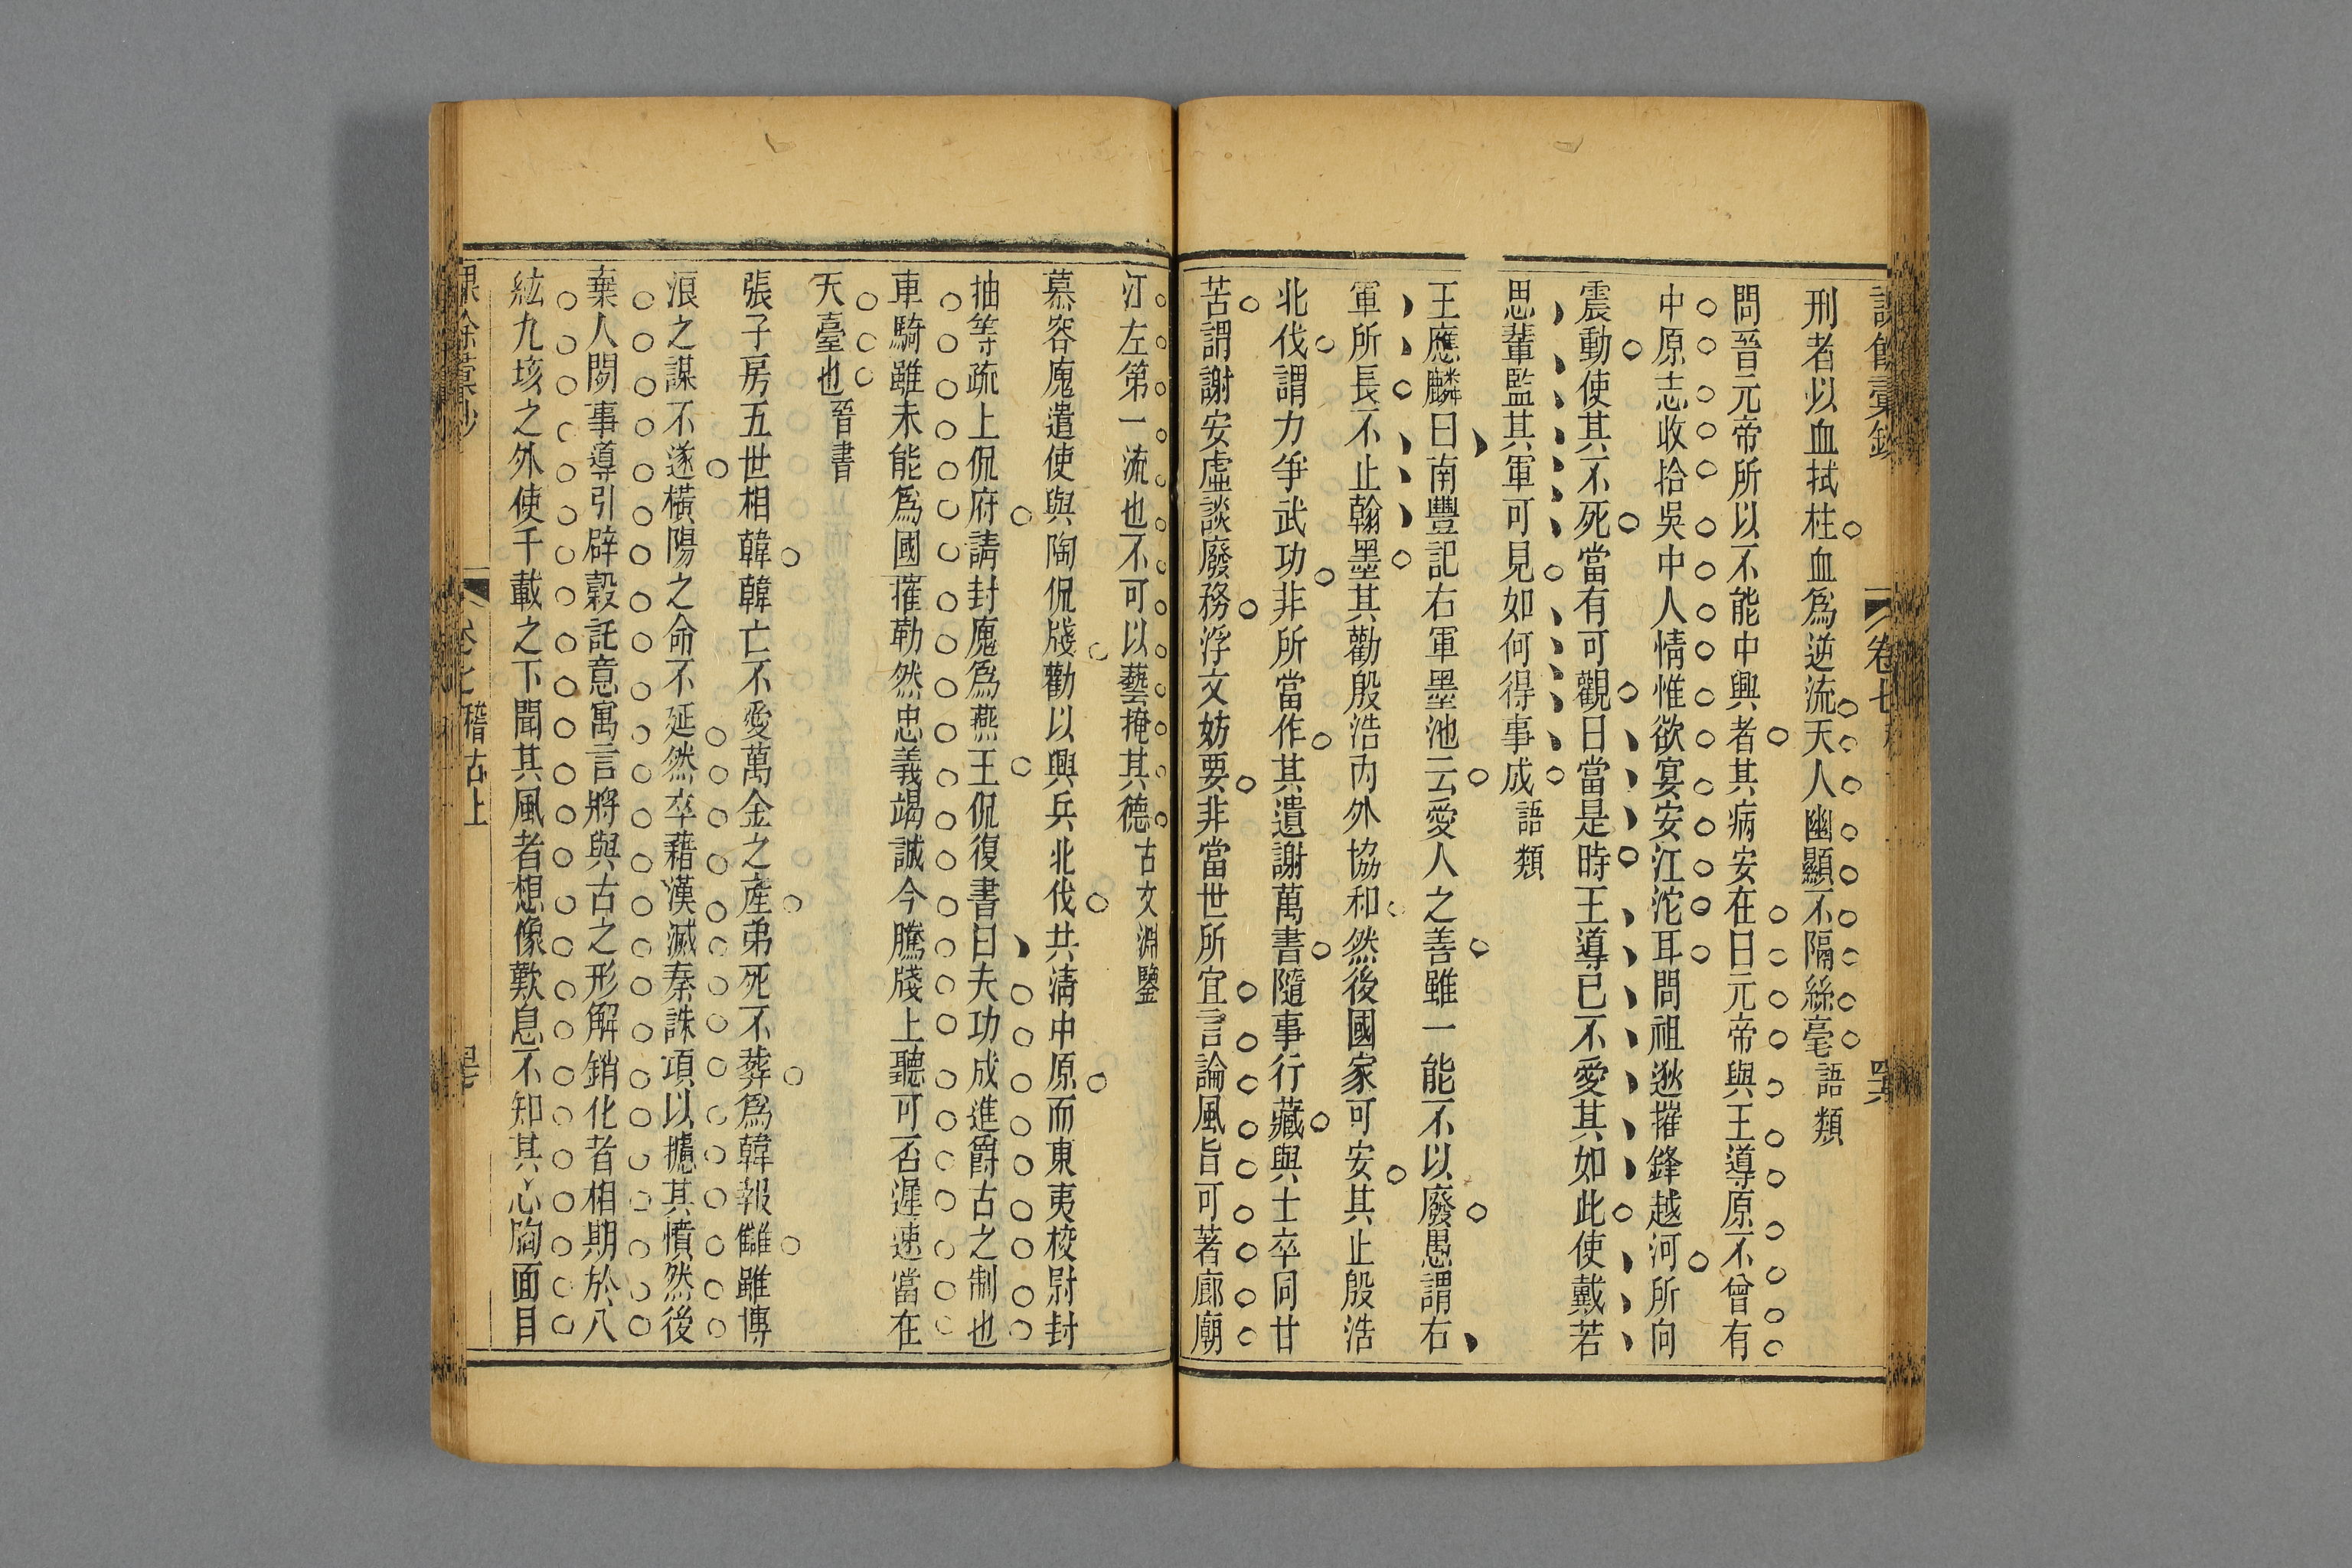 課餘彙鈔 卷七 四六
刑者以血拭柱血爲逆流天人幽顯不隔絲毫語類
問晉元帝所以不能中興者其病安在曰元帝與王導原不曾有
中原志收拾吳中人情惟欲宴安江沱耳問祖逖摧鋒越河所向
震動使其不死當有可觀曰當是時王導已不愛其如此使戴若
思輩監其軍可見如何得事成語類
王應麟曰南豐記右軍墨池云愛人之善雖一能不以廢愚謂右
軍所長不止翰墨其勸殷浩內外協和然後國家可安其止殷浩
北伐謂力爭武功非所當作其遺謝萬書隨事行藏與士卒同甘
苦謂謝安虛談廢務浮文妨要非當世所宜言論風旨可著廊廟
江左第一流也不可以藝掩其德古文淵鑒
慕容廆遣使與陶侃牋勸以興兵北伐共淸中原而東夷校尉封
抽等疏上侃府請封廆爲燕王侃復書曰夫功成進爵古之制也
車騎雖未能爲國摧勒然忠義竭誠今騰牋上聽可否遲速當在
天臺也晉書
張子房五世相韓韓亡不愛萬金之產弟死不葬爲韓報讎雖博
浪之謀不遂橫陽之命不延然卒藉漢滅秦誅項以攄其憤然後
棄人間事導引辟穀託意寓言將與古之形解銷化者相期於八
紘九垓之外使千載之下聞其風者想像歎息不知其心胸面目
課餘彙鈔 卷七 稽古上